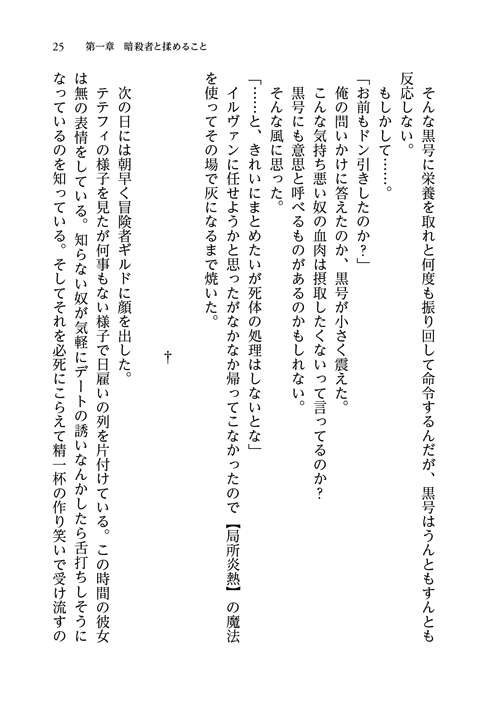 25　第一章　暗殺者と揉めること
そんな黒号に栄養を取れと何度も振り回して命令するんだが、黒号はうんともすんとも
反応しない。
もしかして……。
「お前もドン引きしたのか？」
俺の問いかけに答えたのか、黒号が小さく震えた。
こんな気持ち悪い奴の血肉は摂取したくないって言ってるのか？
黒号にも意思と呼べるものがあるのかもしれない。
そんな風に思った。
「……と、きれいにまとめたいが死体の処理はしないとな」
イルヴァンに任せようかと思ったがなかなか帰ってこなかったので【局所炎熱】の魔法
を使ってその場で灰になるまで焼いた。
†
次の日には朝早く冒険者ギルドに顔を出した。
テテフィの様子を見たが何事もない様子で日雇いの列を片付けている。この時間の彼女
は無の表情をしている。知らない奴が気軽にデートの誘いなんかしたら舌打ちしそうに
なっているのを知っている。そしてそれを必死にこらえて精一杯の作り笑いで受け流すの